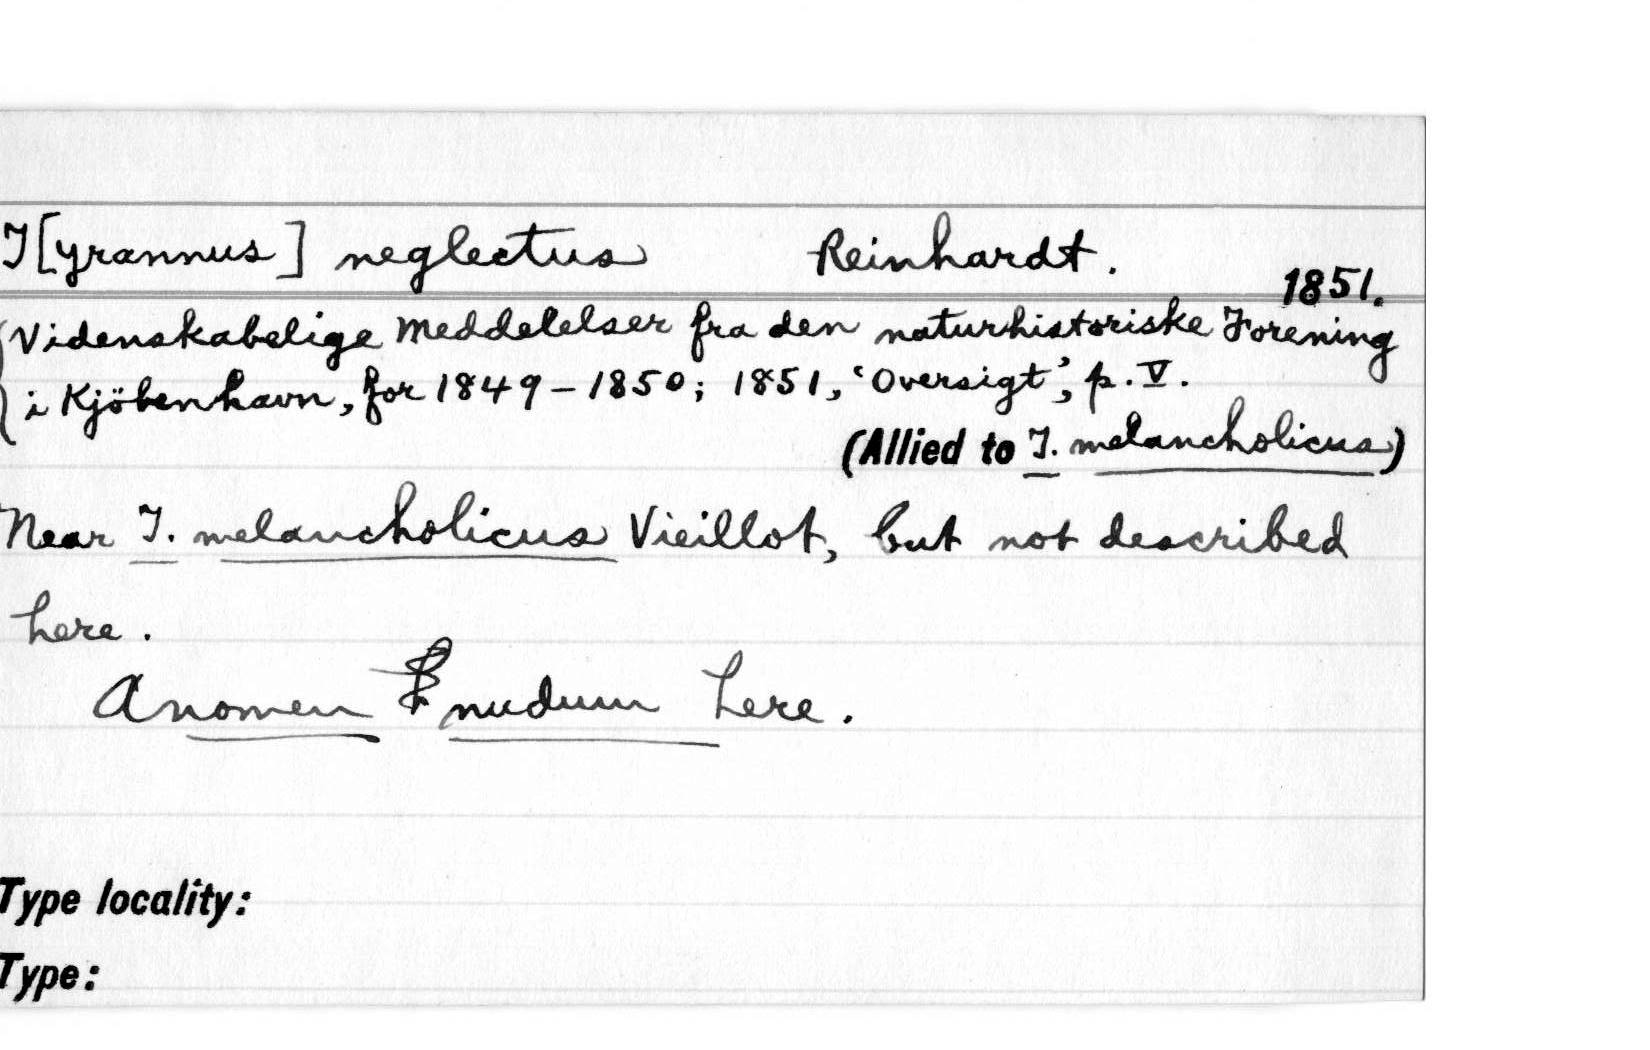 T[yrannus] neglectus Reinhardt.
1851.
Videnskabelige Meddelelser fra den naturhistoriske Forening
i Kjöbenhavn, for 1849-1850; 1851, 'Oversigt', p. V.
(Allied to T. melancholicus)
Near T. melancholicus Vieillot, but not described
here.
A nomen nudum here.
Type locality:
Type: